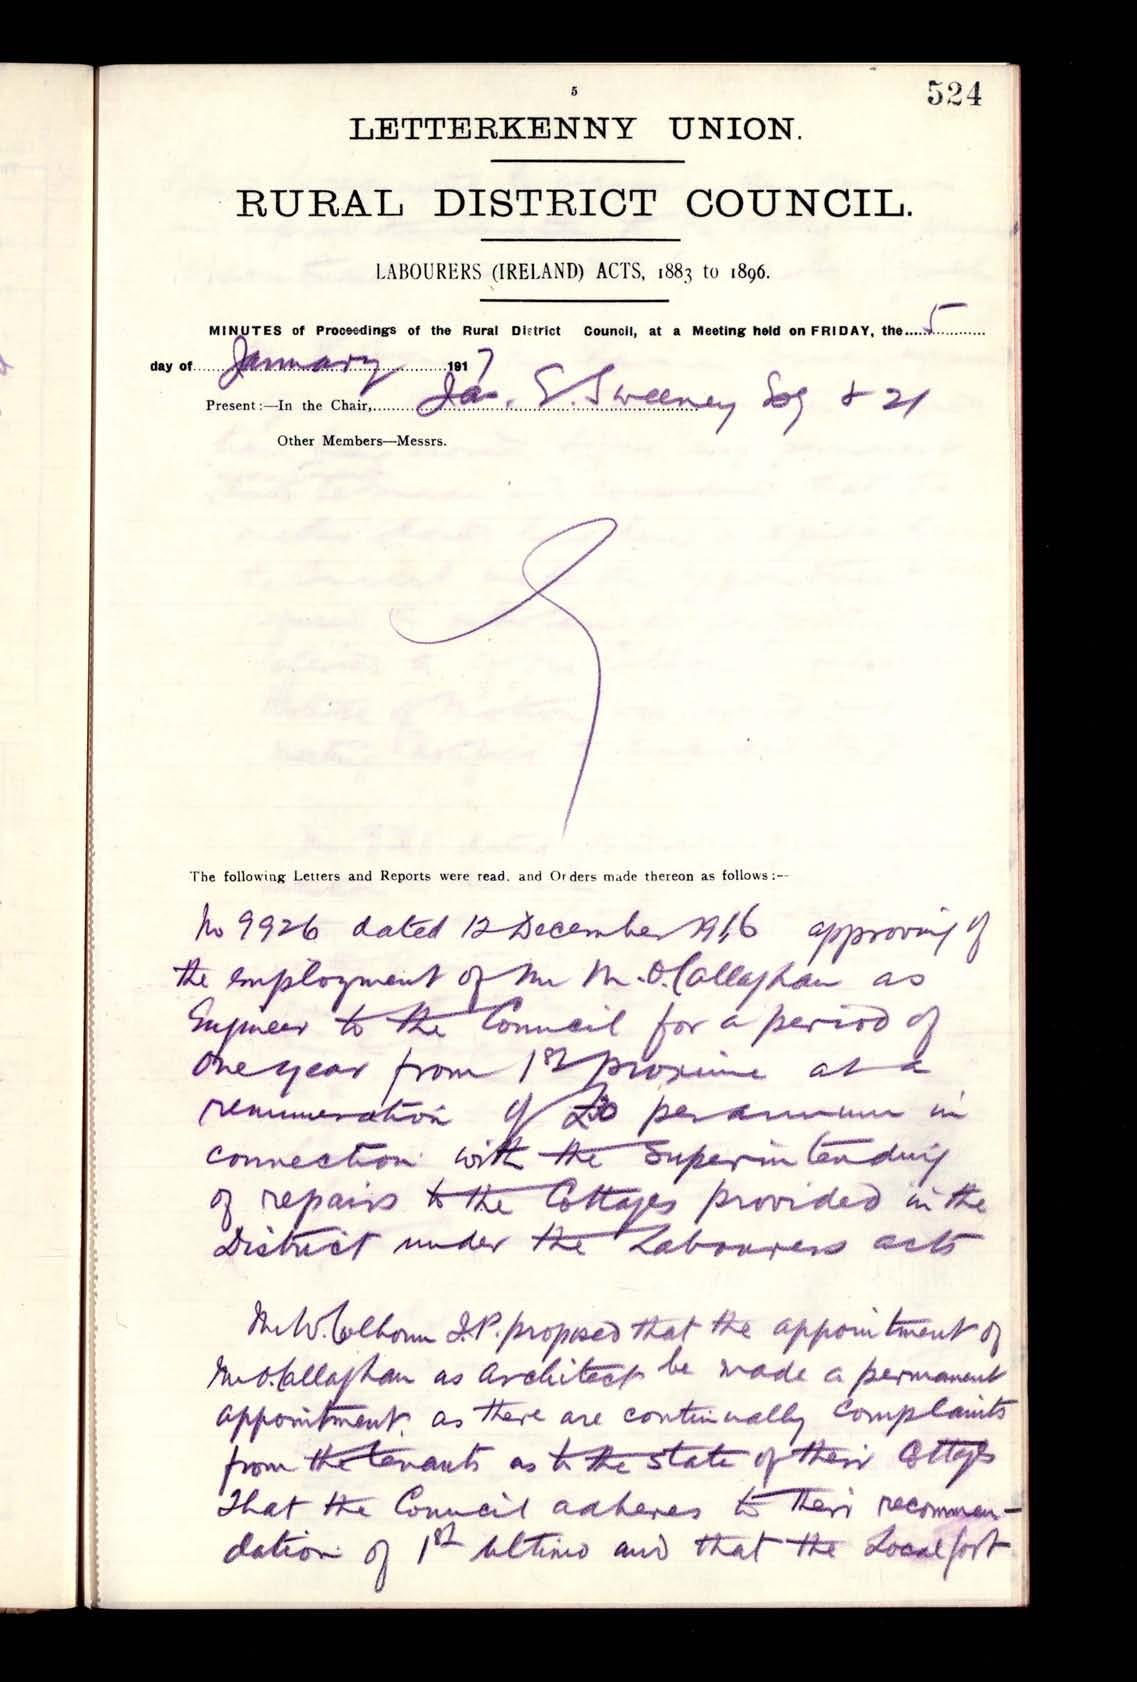 5
524
LETTERKENNY UNION.
RURAL DISTRICT COUNCIL.
LABOURERS (IRELAND) ACTS, 1883 to 1896.
MINUTES of Proceedings of the Rural District Council, at a Meeting held on FRIDAY, the 5
day of January 1917
Present:—In the Chair, Jas. E. Sweeney Esq & 21
Other Members—Messrs.
The following Letters and Reports were read, and Orders made thereon as follows:—
No 9926 dated 12 December 1916 approving of
the employment of Mr M. O.Callaghan as
Engineer to the Council for a period of
One year from 1st proximo at a
remuneration of per annum in
connection with the Superintending
of repairs to the Cottages provided in the
District under the Labourers acts
Mr W. Colhoun J.P. proposed that the appointment of
Mr O.Callaghan as Architect be made a permanent
appointment as there are continually complaints
from the tenants as to the state of their Cottages
That the Council adheres to their recommen-
dation of 1st ultimo and that the Local Govt